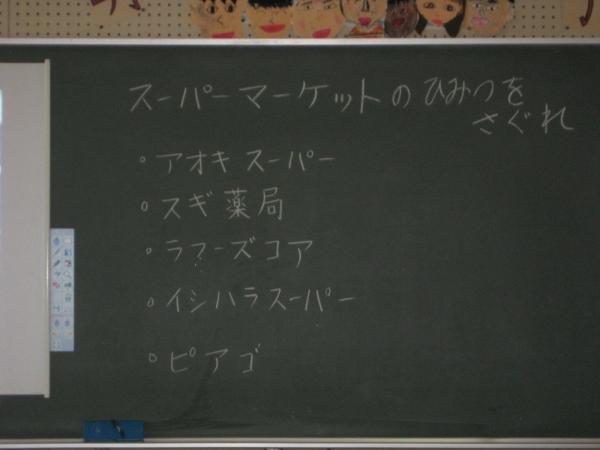 スーパーマーケットのひみつを
さぐれ
。アオキスーパー
。スギ薬局
。ラフーズコア
。イシハラスーパー
。ピアゴ